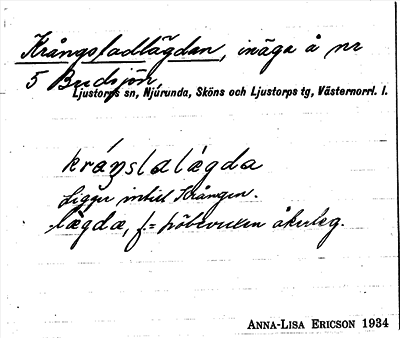 Krångsladlägdan, inäga å nr
5 Budsjön,
Ljustorps sn, Njurunda, Sköns och Ljustorps tg, Västernorrl. l.
kráŋslalägda
Ligger intill Krången.
lägda, f. = fröbevuxen åkerteg.
ANNA-LISA ERICSON 1934